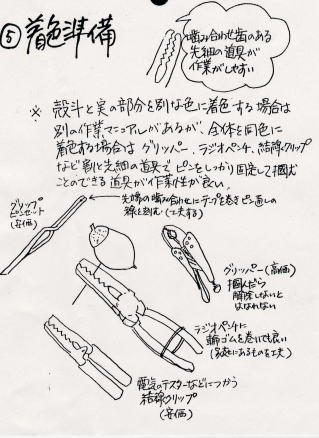 ⑤着色準備
噛み合わせ歯のある
先細の道具が
作業がしやすい
※ 殻斗と実の部分を別な色に着色する場合は
別の作業マニュアルがあるが、全体と同色に
着色する場合は グリッパー、ラジオペンチ、結線クリップ
など割と先細の道具で ピンをしっかり固定して掴む
ことのできる道具が作業性が良い。
グリップ
ピンセット
(安価)
先端の噛み合わせにテープを巻きピン通しの
線を刻む(工夫する)
グリッパー(高価)
掴んだら
解除しないと
はなれない
ラジオペンチに
輪ゴムを巻いても良い
(家庭にあるものを工夫)
電気のテスターなどにつかう
結線クリップ
(安価)